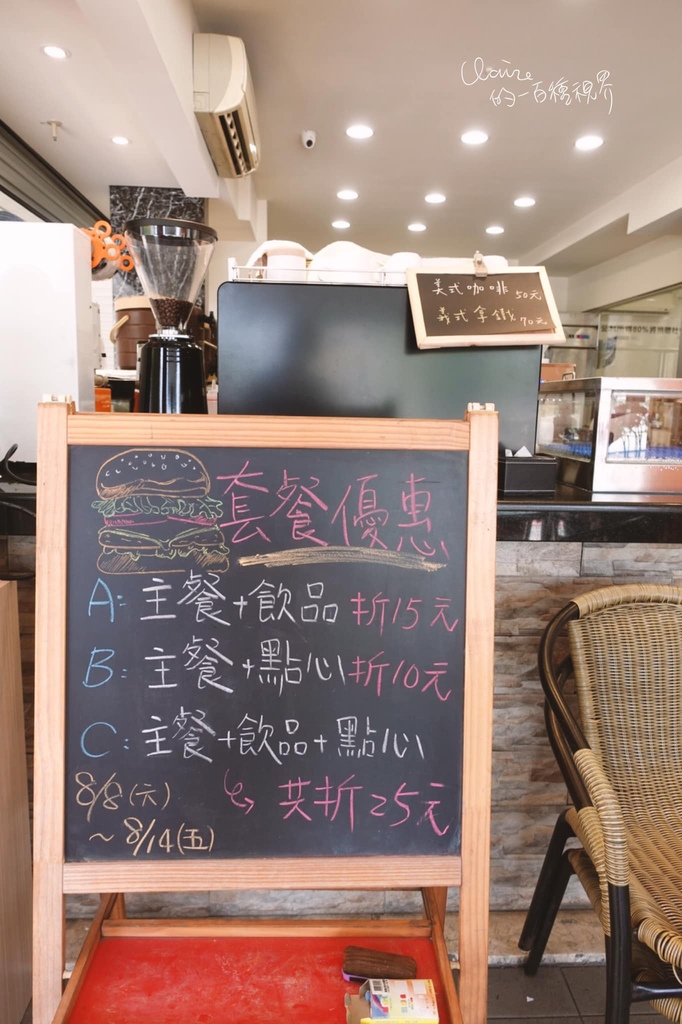 Claire
的一百種視界
美式咖啡 50元
義式拿鐵 70元
套餐優惠
A: 主餐+飲品 折15元
B: 主餐+點心 折10元
C: 主餐+飲品+點心
8/8(六)
↳ 共折25元
~ 8/14(五)